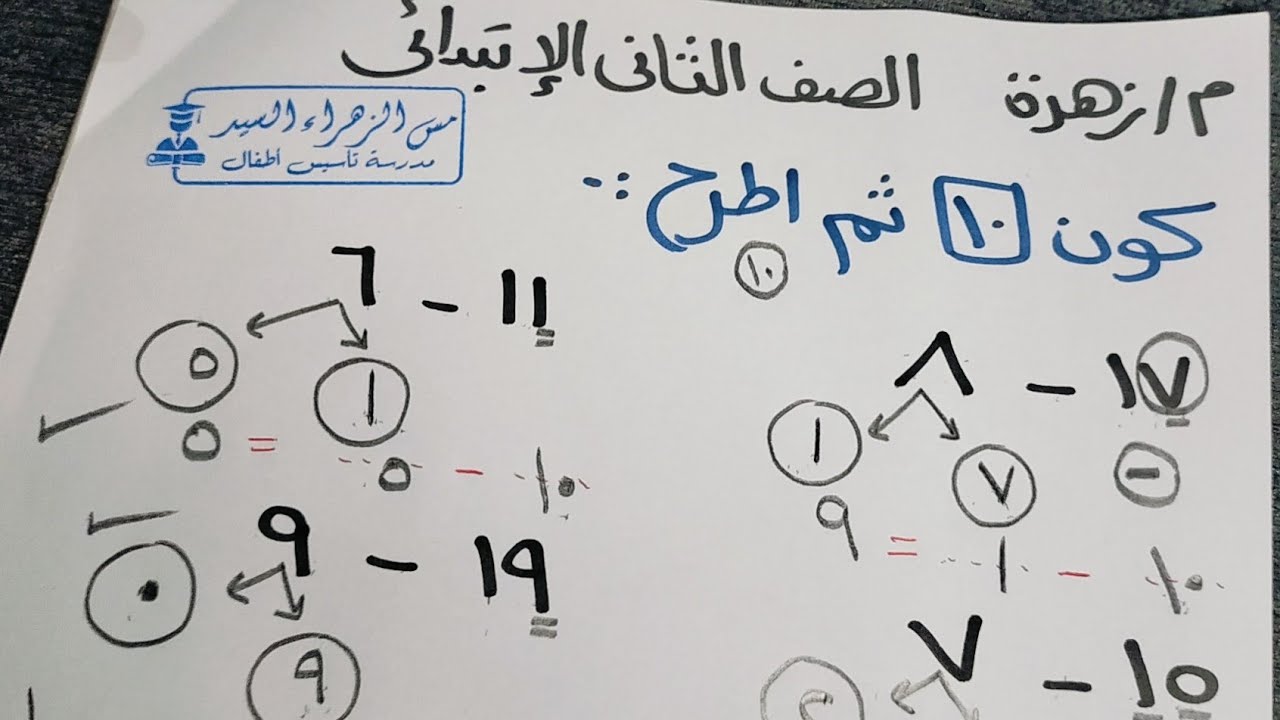 م/زهرة الصف الثانى الإبتدائى
مس الزهراء السيد
مدرسة تأسيس أطفال
كون ١٠ ثم اطرح :-
١٠
١٧ - ٨
٧ ١
-
١٠ - ١ = ٩
١٥ - ٧
١١ - ٦
١ ٥
١٠ - ٥ = ٥
١٩ - ٩
٩ ٠